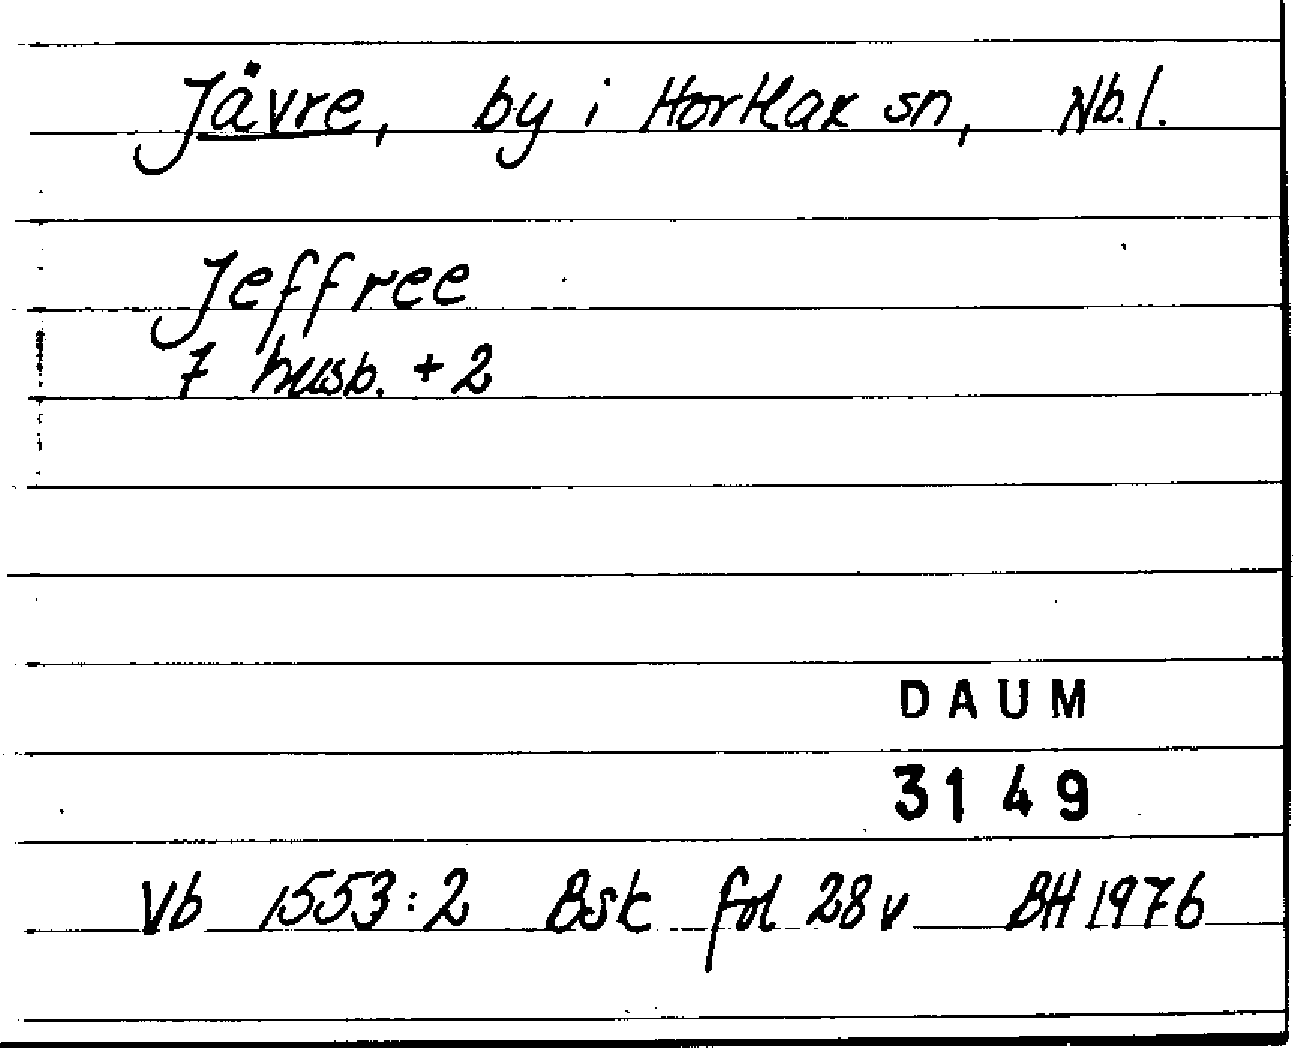 Jävre, by i Hortlax sn, Nb.l.
Jeffree
7 husb. + 2
DAUM
3149
Vb 1553:2 Bsk fol 28 v BH 1976